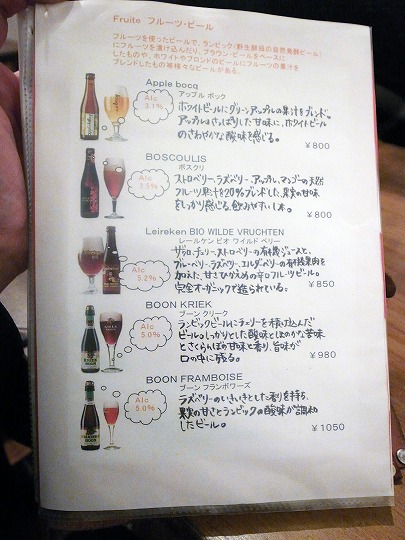 Fruite フルーツ・ビール
フルーツを使ったビールで、ランビック(野生酵母の自然発酵ビール)
にフルーツを漬け込んだり、ブラウン・ビールをベースに
したものや、ホワイトやブロンドのビールにフルーツの果汁を
ブレンドしたもの等様々なビールがある。
Apple bocq
アップル ボック
Alc
3.1%
ホワイトビールにグリーンアップルの果汁をブレンド。
アップルのさっぱりした甘味に、ホワイトビール
のさわやかな酸味を感じる。
￥800
BOSCOULIS
ボスクリ
Alc
3.5%
ストロベリー、ラズベリー、アップル、マンゴーの天然
フルーツ果汁を20%ブレンドした、果実の甘味
をしっかり感じる、飲みやすい1本。
￥800
Leireken BIO WILDE VRUCHTEN
レールケン ビオ ワイルド ベリー
Alc
5.2%
ザクロ、チェリー、ストロベリーの有機ジュースと、
ブルーベリー、ラズベリー、エルダーベリーの有機果肉を
加えた、甘さひかえめの辛口フルーツビール。
完全オーガニックで造られている。
￥850
BOON KRIEK
ブーン クリーク
Alc
5.0%
ランビックビールにチェリーを漬け込んだ
ビール。しっかりとした酸味とほのかな苦味
とさくらんぼの甘味と香り、旨味が
口の中に残る。
￥980
BOON FRAMBOISE
ブーン フランボワーズ
Alc
5.0%
ラズベリーのいきいきとした香りを持ち、
果実の甘さとランビックの酸味が調和
したビール。
￥1050